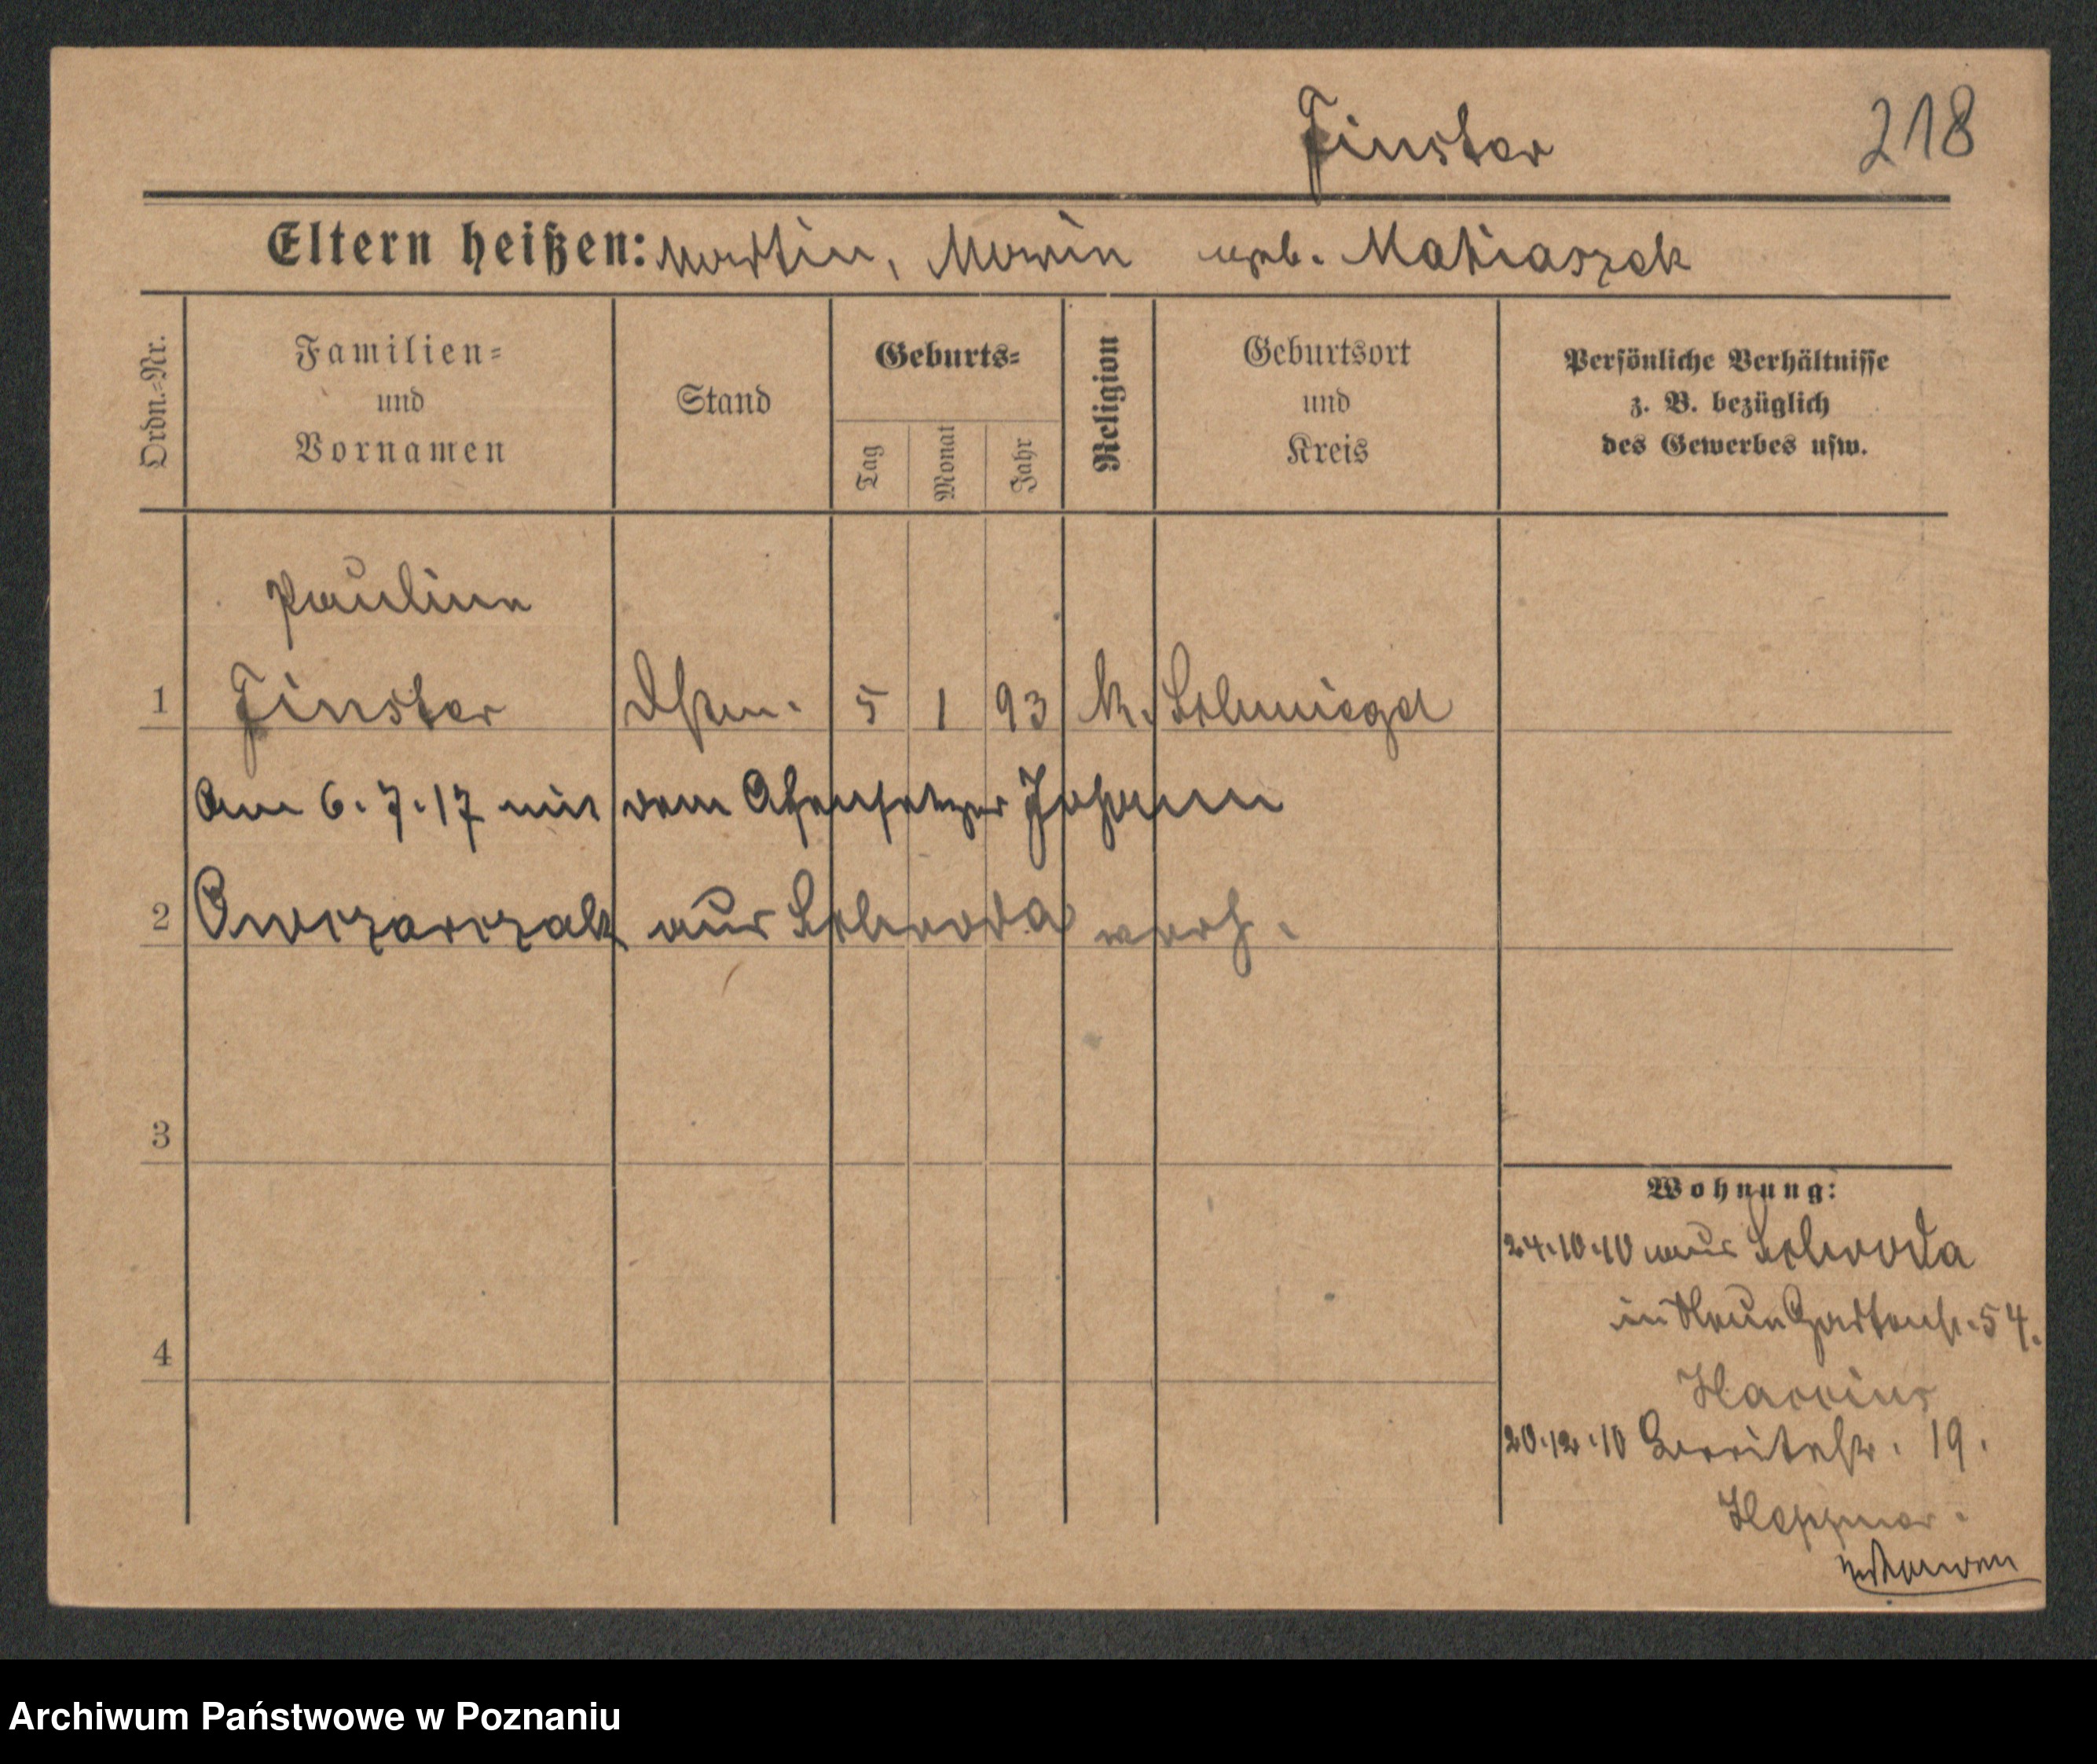 Finster 218
Eltern heißen: Martin, Marie geb. Matiaszek
Ordn.-Nr.
Familien-
und
Vornamen
Stand
Geburts-
Tag
Monat
Jahr
Religion
Geburtsort
und
Kreis
Persönliche Verhältnisse
z. B. bezüglich
des Gewerbes usw.
Pauline
1 Finster 5 1 93 k. Schmiegel
Am 6.7.17 mit dem Ofensetzer Johann
2 Owczarczak aus Schroda verh.
3
4
Wohnung:
24.10.10 aus Schroda
in Neue Gartenstr. 54.
20.12.10 19.
Archiwum Państwowe w Poznaniu